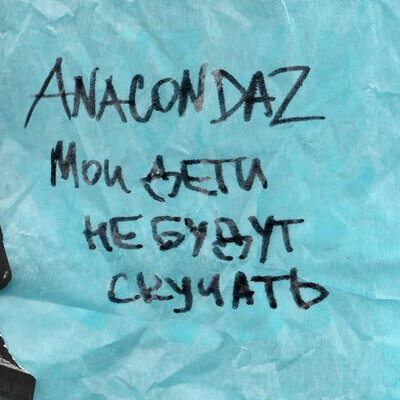 ANACONDAZ
Мои дети
не будут
скучать